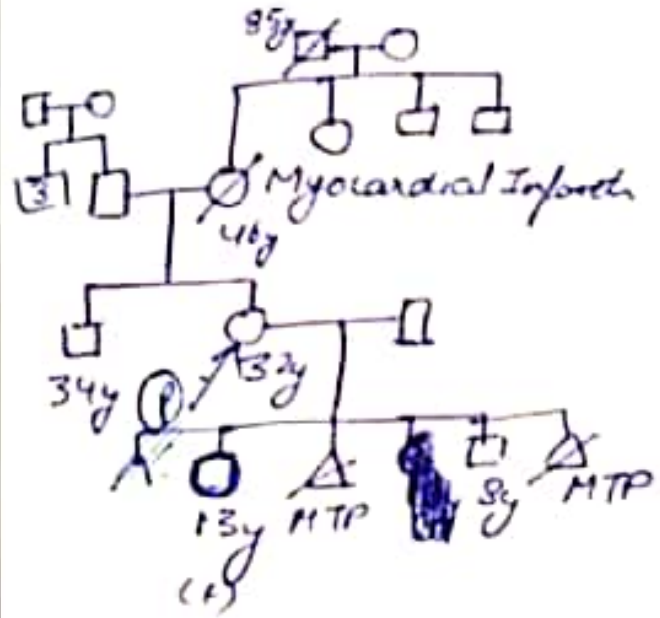 85y
3
Myocardial Infarctn
46y
34y
32y
P
13y
MTP
8y
MTP
(+)